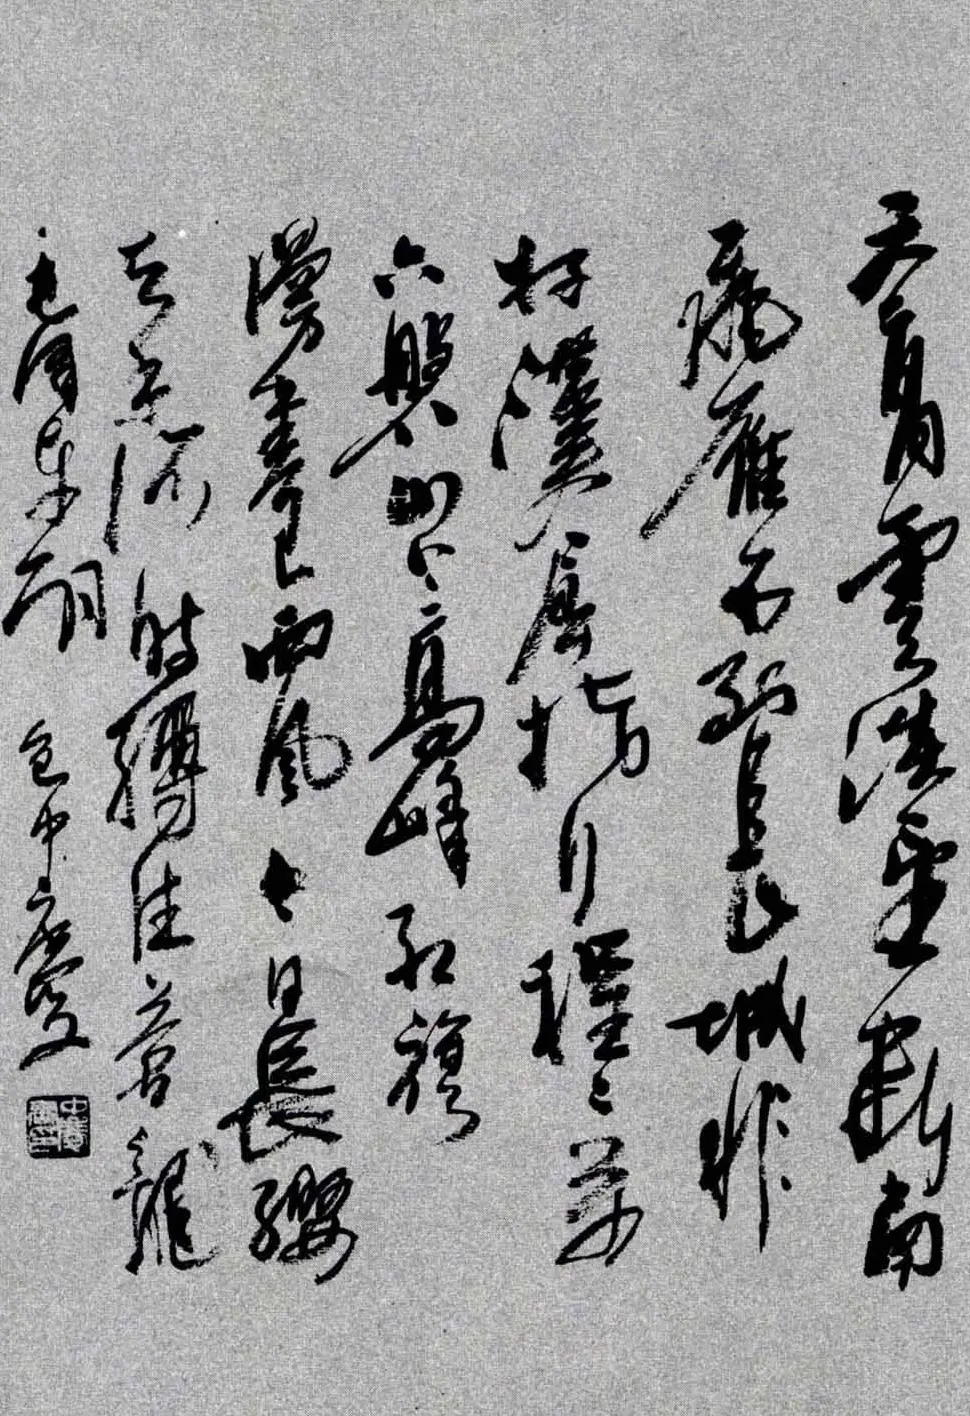 天高雲淡望斷南
飛雁不到長城非
好漢屈指行程二萬
六盤山上高峰紅旗
漫卷西風今日長纓
在手何時縛住蒼龍
毛澤東詞 包中慶